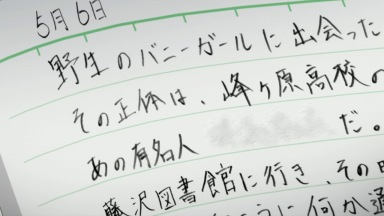 5月6日
野生のバニーガールに出会った
その正体は、峰ヶ原高校の
あの有名人 だ。
藤沢図書館に行き、その